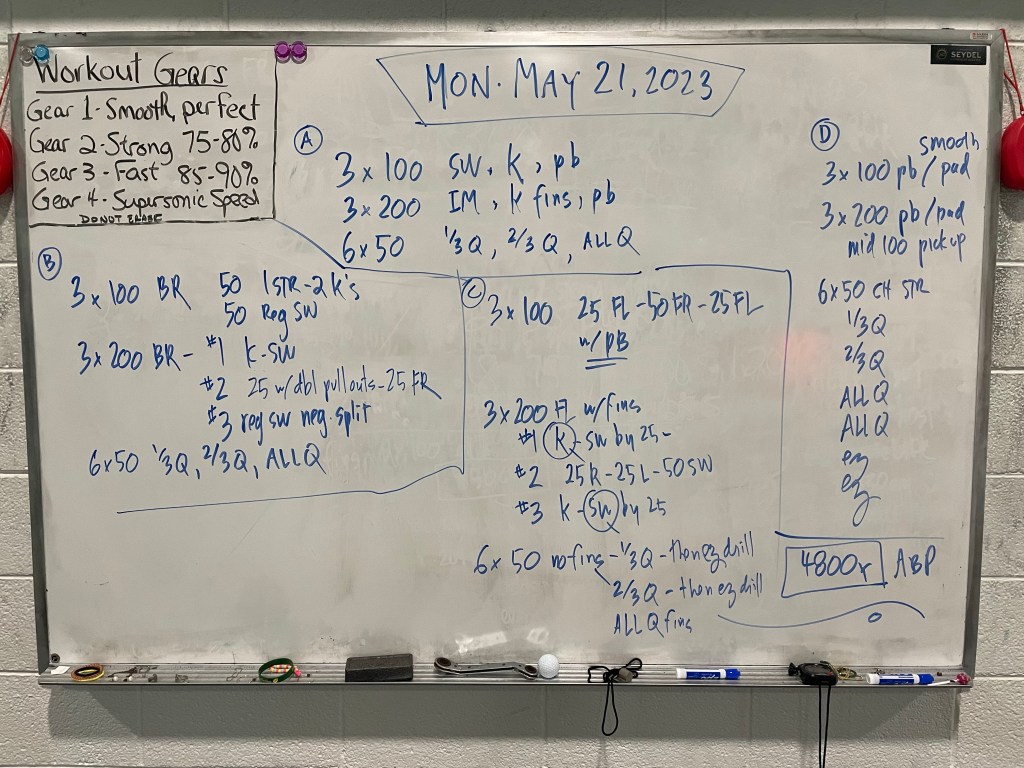 SEYDEL
Workout Gears
Gear 1 - Smooth, perfect
Gear 2 - Strong 75-80%
Gear 3 - Fast 85-90%
Gear 4 - Supersonic Speed
DO NOT ERASE
MON. MAY 21, 2023
A
3 x 100 SW, K, pb
3 x 200 IM, K fins, pb
6 x 50 1/3 Q, 2/3 Q, ALL Q
B
3 x 100 BR 50 1 STR - 2 K's
50 Reg SW
3 x 200 BR - #1 K-SW
#2 25 w/dbl pullouts - 25 FR
#3 reg sw neg. split
6 x 50 1/3 Q, 2/3 Q, ALL Q
C
3 x 100 25 FL - 50 FR - 25 FL
w/ PB
3 x 200 FL w/fins
#1 K - sw by 25 -
#2 25 R - 25 L - 50 SW
#3 K - SW by 25
6 x 50 no fins - 1/3 Q - then ez drill
2/3 Q - then ez drill
ALL Q fins
D
smooth
3 x 100 pb / pad
3 x 200 pb / pad
mid 100 pick up
6 x 50 CH STR
1/3 Q
2/3 Q
ALL Q
ALL Q
ez
ez
4800y ABP